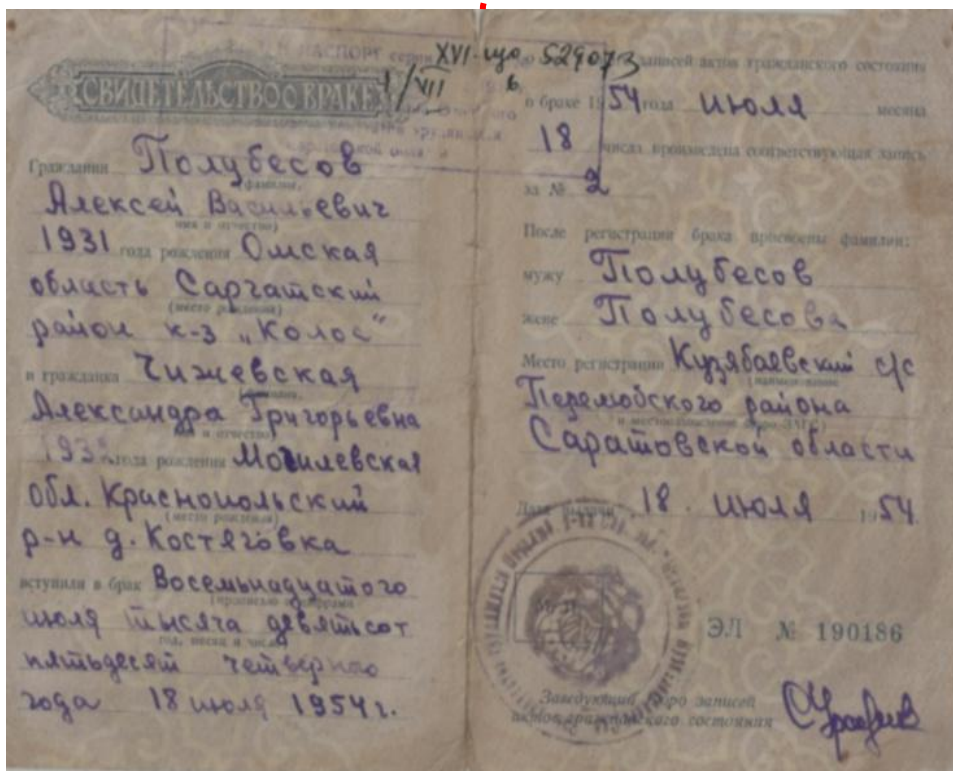 ПАСПОРТ серии XVI-що № 529073
1/VII 6
СВИДЕТЕЛЬСТВО О БРАКЕ
Гражданин Полубесов
(фамилия,
Алексей Васильевич
имя и отчество)
1931 года рождения Омская
область Саргатский
(место рождения)
район к-з „Колос"
и гражданка Чижевская
(фамилия,
Александра Григорьевна
имя и отчество)
193 года рождения Могилевская
обл. Краснопольский
(место рождения)
р-н д. Костяговка
вступили в брак Восемьнадцатого
(прописью и цифрами
июля тысяча девятьсот
год, месяц и число)
пятьдесят четверного
года 18 июля 1954 г.
записей актов гражданского состояния
о браке 1954 года июля месяца
18 числа произведена соответствующая запись
за № 2
После регистрации брака присвоены фамилии:
мужу Полубесов
жене Полубесова
Место регистрации Кузябаевский с/с
(наименование
Перелюбского района
и местонахождение бюро ЗАГС)
Саратовской области
Дата выдачи 18 июля 1954
ЭЛ № 190186
Заведующий бюро записей
актов гражданского состояния